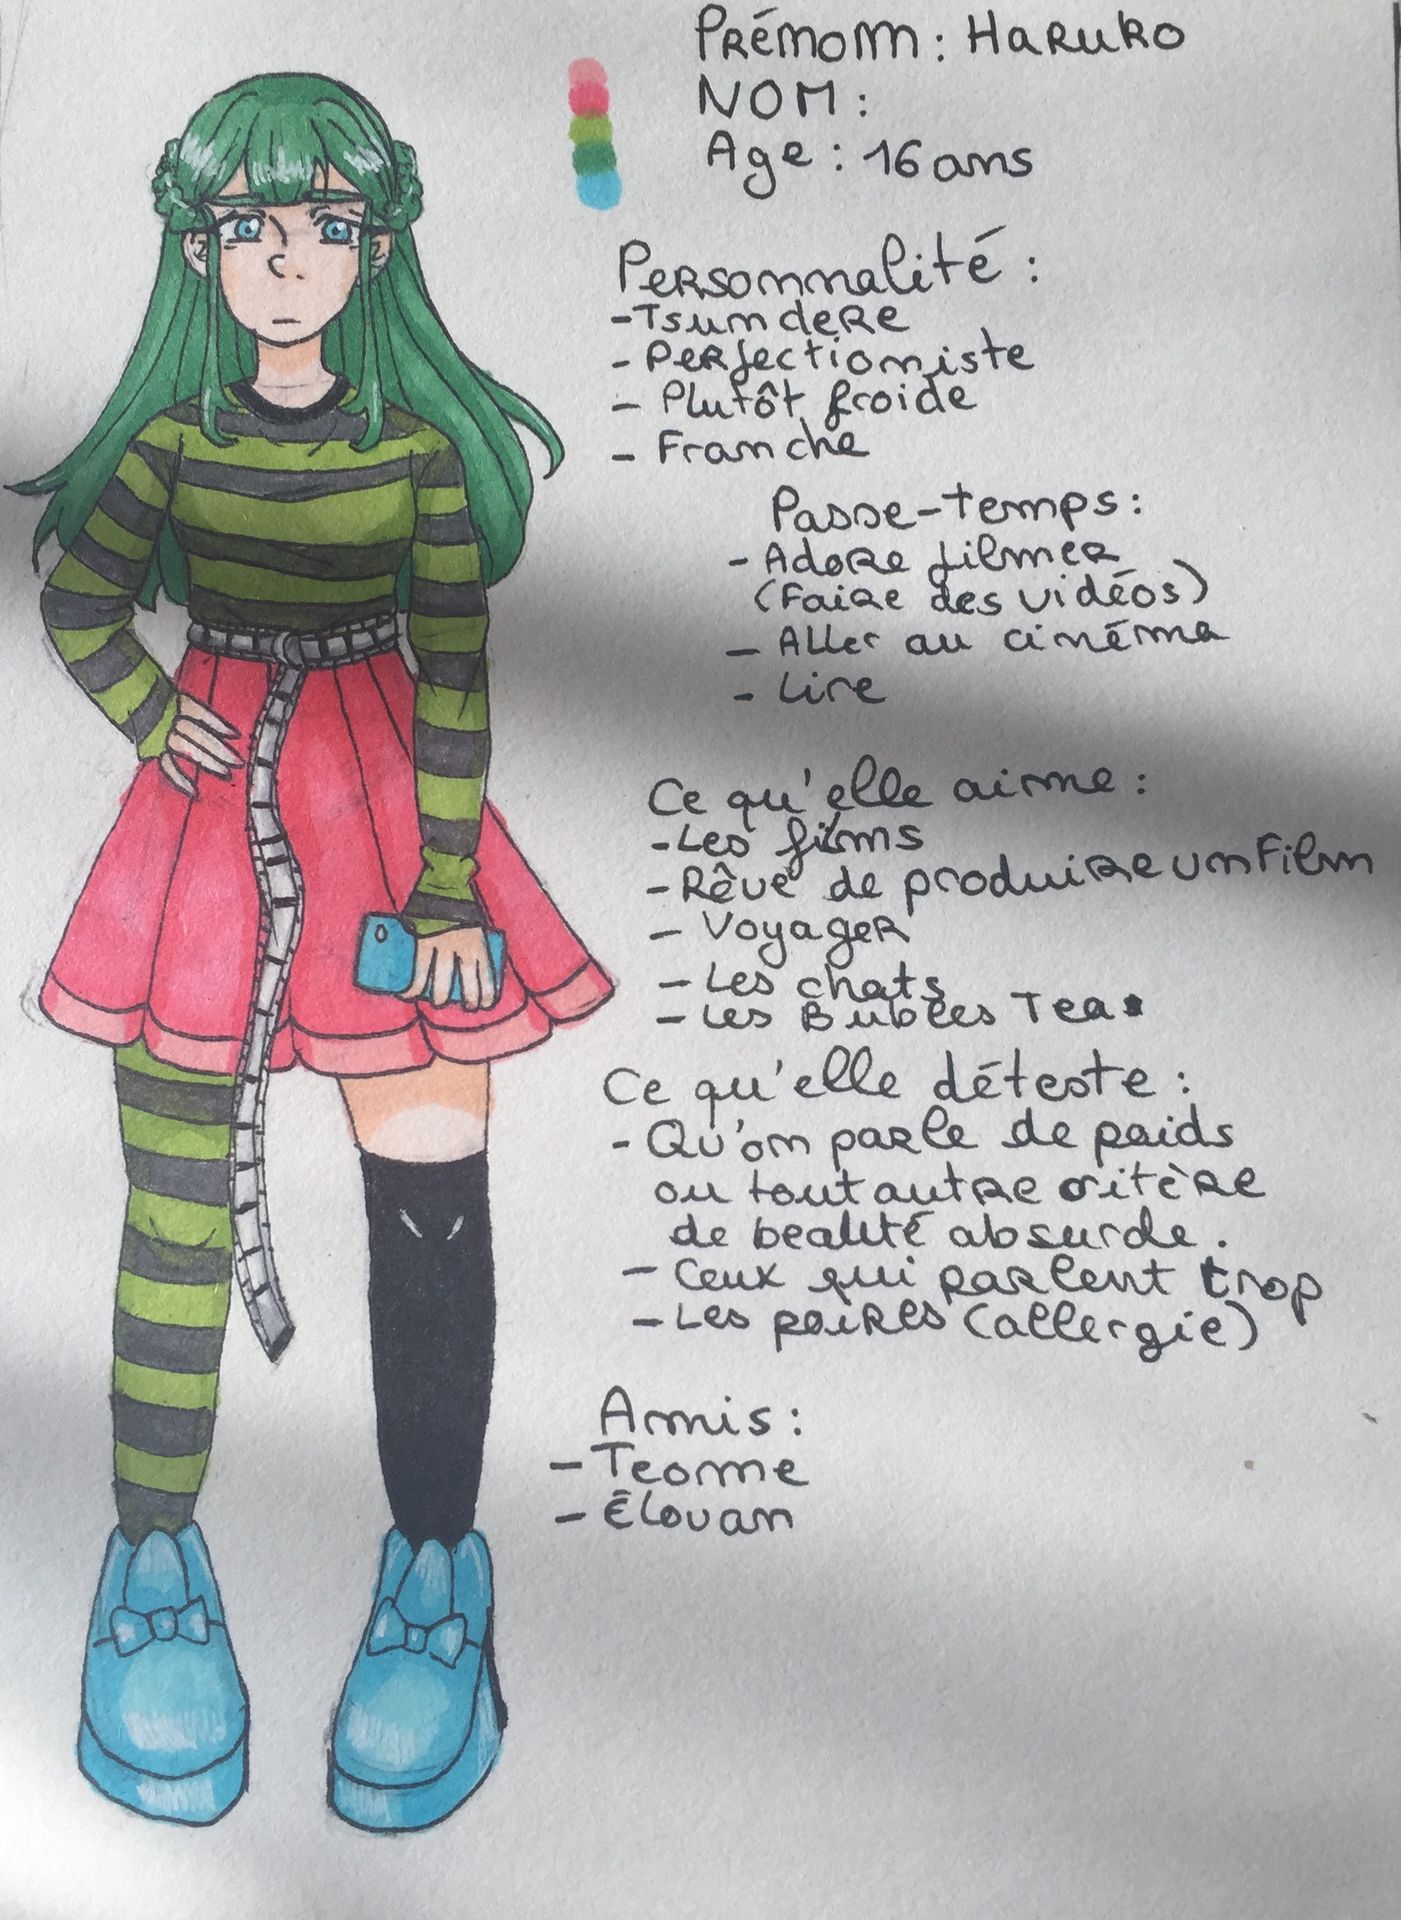 Prénom : Haruko
NOM :
Age : 16 ans
Personnalité :
- Tsundere
- Perfectioniste
- Plutôt froide
- Franche
Passe-temps :
- Adore filmer
(Faire des vidéos)
- Aller au cinéma
- Lire
Ce qu'elle aime :
- Les films
- Rêve de produire un Film
- Voyager
- Les chats
- Les Bubles Tea
Ce qu'elle déteste :
- Qu'on parle de poids
ou tout autre critère
de beauté absurde.
- Ceux qui parlent trop
- Les poires (allergie)
Amis :
- Teome
- Élouan